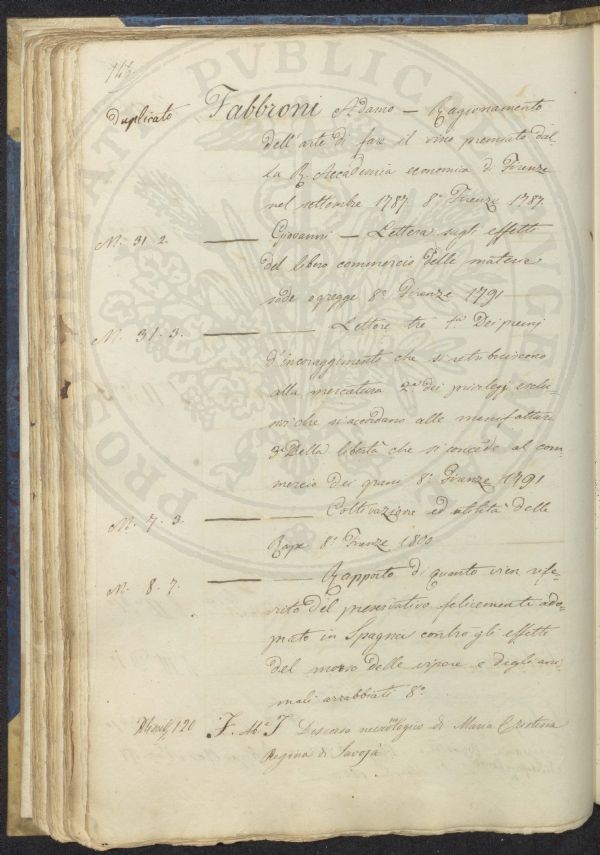 Duplicato Fabbroni Adamo — Ragionamento
dell'arte di fare il vino premiato dal-
la R. Accademia economia di Firenze
nel settembre 1787 8° Firenze 1787
N. 31. 2. —— Giovanni — Lettera sugli effetti
del libero commercio delle materie
sode e gregge 8° Firenze 1791
N. 31. 3. —— —— Lettere tre 1a Dei premj
d'incoraggimento che si retribuiscono
alla mercatura 2a dei privilegj esclu-
sivi che si accordano alle manifatture
3a Della libertà che si concede al com-
mercio dei grani 8° Firenze 1791
N. 7. 3. —— —— Coltivazione ed utilità delle
Rape 8° Firenze 1800
N. 8. 7. —— —— Rapporto di quanto vien rife-
rito del preservativo felicemente ado-
prato in Spagna contro gli effetti
del morso delle vipere e degli ani-
mali arrabbiati 8°
120 F. M. T Discorso necrologico di Maria Cristina
Regina di Savoja